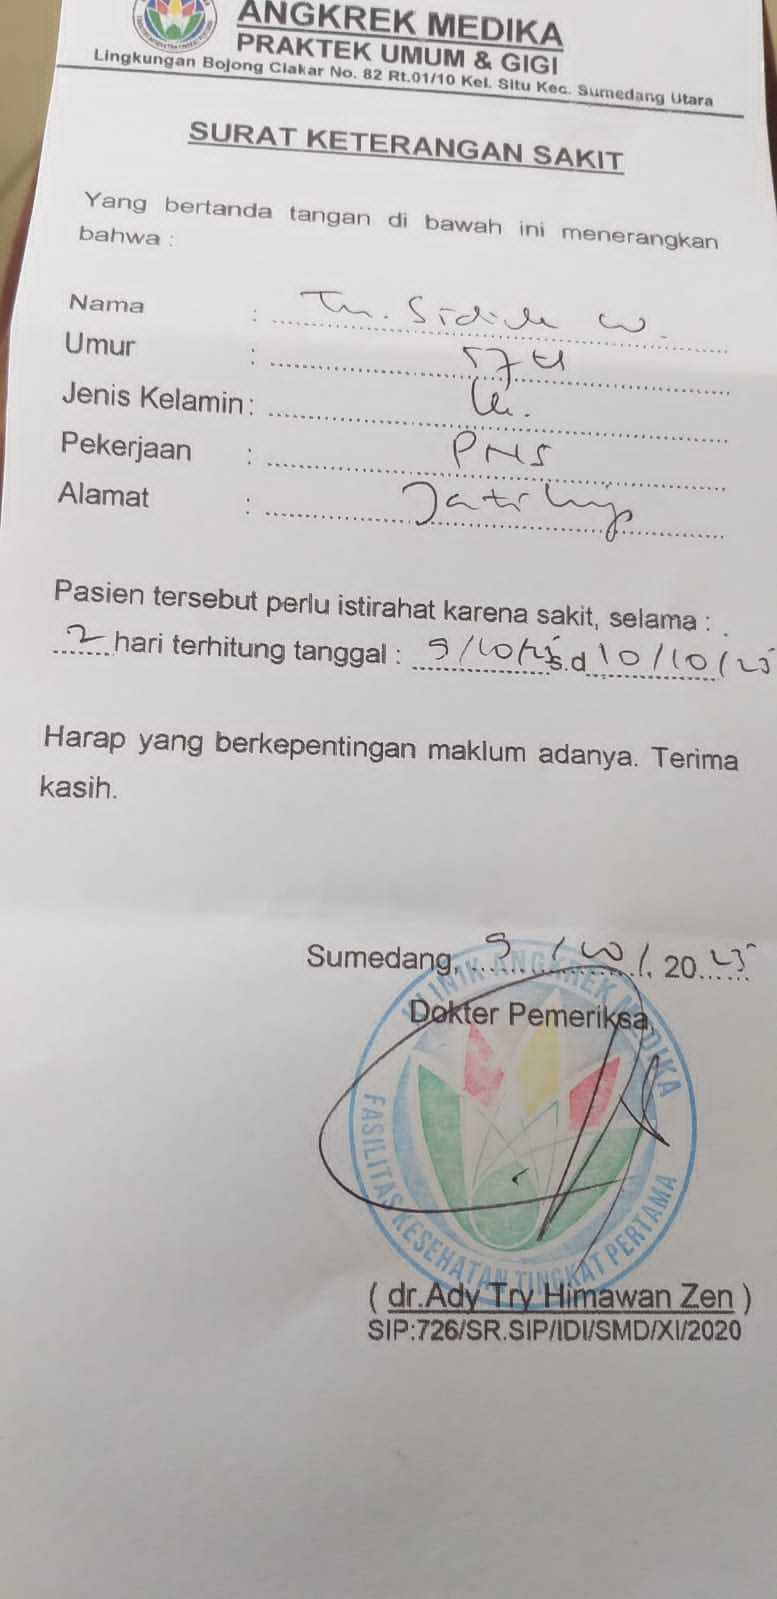 ANGKREK MEDIKA
PRAKTEK UMUM & GIGI
Lingkungan Bojong Ciakar No. 82 Rt.01/10 Kel. Situ Kec. Sumedang Utara
SURAT KETERANGAN SAKIT
Yang bertanda tangan di bawah ini menerangkan
bahwa :
Nama : Tn. Sidik W.
Umur : 57 th
Jenis Kelamin :
Pekerjaan : PNS
Alamat :
Pasien tersebut perlu istirahat karena sakit, selama :
2 hari terhitung tanggal : 9/10/25 s.d 10/10/25
Harap yang berkepentingan maklum adanya. Terima
kasih.
Sumedang, 9/10/. 2025
Dokter Pemeriksa,
KLINIK ANGKREK MEDIKA
FASILITAS KESEHATAN TINGKAT PERTAMA
( dr.Ady Try Himawan Zen )
SIP:726/SR.SIP/IDI/SMD/XI/2020